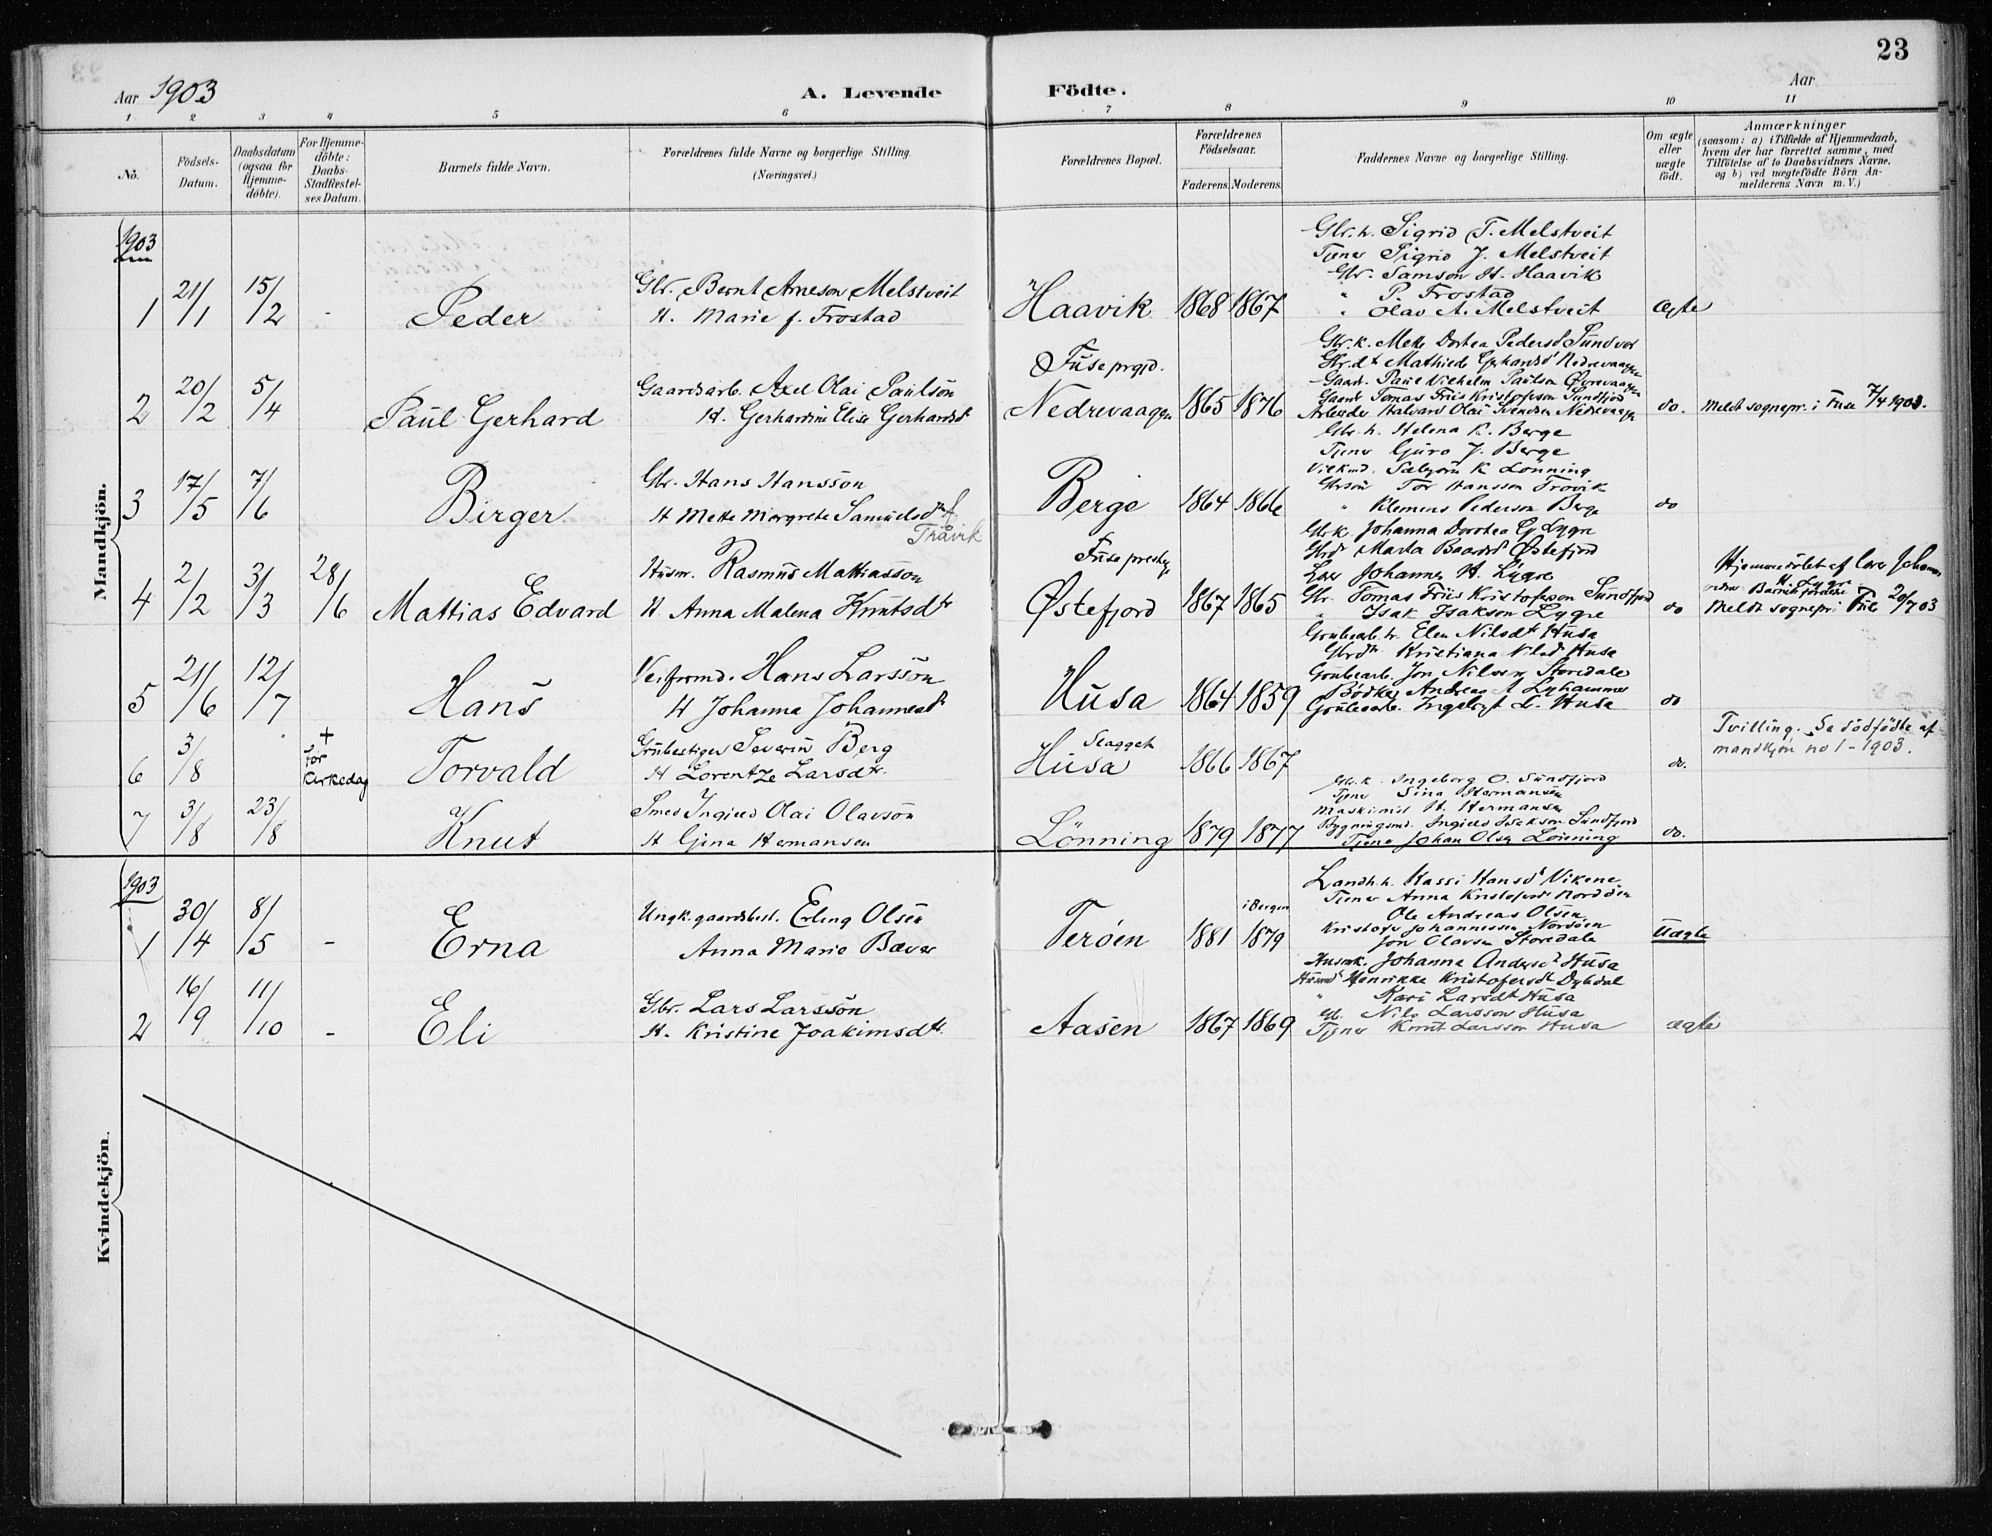 23
Aar 1903
A. Levende Födte.
Aar
1 2 3 4 5 6 7 8 9 10 11
No.
Födsels-Datum.
Daabsdatum (ogsaa för Hjemme-döbte).
For Hjemme-döbte: Daabs-Stadfæstel-ses Datum.
Barnets fulde Navn.
Forældrenes fulde Navne og borgerlige Stilling. (Næringsvei.)
Forældrenes Bopæl.
Forældrenes Födselsaar.
Faderens. Moderens.
Faddernes Navne og borgerlige Stilling.
Om ægte eller uægte födt.
Anmærkninger
(saasom: a) i Tilfælde af Hjemmedaab, hvem der har forrettet samme, med Tilföielse af to Daabsvidners Navne, og b) ved uægtefödte Börn An-melderens Navn m. V.)
Mandkjön.
1903
1 21/1 15/2 - Peder
Gbr. Bernt Arneson Melstveit
H. Marie f. Frostad
Haavik 1868 1867
Gbr. h. Sigrid T. Melstveit
Tjener Sigrid J. Melstveit
Gbr. Samson H. Haavik
" P. Frostad
" Olav A. Melstveit
ægte
2 20/2 5/4 Paul Gerhard
Gaardsarb. Axel Olai Paulson
H. Gerhardine Elise Gerhardsdt
Fuse prgjd.
Nedrevaagen 1865 1876
Gbr. k. Mette Dortea Pedersd Sundvor
Gbr. dt Mathilde Gerhardsd Nedrevaagen
Gaard. Paul Vilhelm Paulson Øvrevaagen
Gaardb Tomas Friis Kristofferson Sundfjord
Arbeider Halvard Olai Svendsen Nedrevaagen
do. Meldt sognepr. i Fuse 7/4 1903.
3 17/5 7/6 Birger
Gbr. Hans Hansson
H Mette Margrete Samuelsdt f. Tråvik
Berge 1864 1866
Gbr. h. Helena K. Berge
Tjener Guro J. Berge
Sæbjörn K Lönning
Gbrsön Tor Hansson Trovik
" Klemens Pederson Berge
do
4 2/2 3/3 28/6 Mattias Edvard
Husm. Rasmus Mattiasson
H. Anna Malena Knutsdtr
Fuse prestegj
Østefjord 1867 1865
Gbrk Johanna Dorotea G. Lygre
Gbrdt Marta Baardsd Østefjord
Lærer Johannes H. Lygre
Gbr. Tomas Friis Kristoferson Sundfjord
Isak Isakson Lygre
do
Hjemmedöbt af lærer Johannes H. Lygre
Meldt sognepr i Fuse 20/7 03
5 21/6 12/7 Hans
Veiformd. Hans Larsson
H Johanna Johannesdt
Husa 1864 1859
Grubearb. h. Elen Nilsdt Husa
Gbrdtr Kristiana Nilsd Husa
Grubearb. Jon Nilsen Storedale
Bödker Andreas A Lyhammer
Grubearb. Ingebrigt L. Husa
do
6 3/8 + för kirkedag Torvald
Grubestiger Severin Berg
H Lorentze Larsdtr.
Slagget
Husa 1866 1867
do.
Tvilling. Se dödfödte af
mandkjön no 1 - 1903.
7 3/8 23/8 Knut
Smed Ingjeld Olai Olavson
H Gjina Hermansen
Lönning 1879 1877
Gbr. k. Ingeborg O. Sundfjord
Tjener Sina Hermansen
Maskinist H. Hermansen
Bygningsmd. Ingjeld Isakson Sundfjord
Tjener Johan Olsen Lönning
do.
Kvindekjön.
1903
1 30/4 8/5 - Erna
Ungk. gaardbest. Erling Olsen
Anna Marie Bæver
Teröen 1881 i Bergen 1879
Landh. h. Kassi Hansd Vikene
Tjener Anna Kristofersd Nordöen
Ole Andreas Olsen
Kristofer Johannessen Norsöen
Jon Olavson Storedale
Uægte
2 16/9 11/10 - Eli
Gbr. Lars Larsson
H. Kristine Joakimsdtr.
Aasen 1867 1869
Husmk. Johanna Andersdt Husa
Husmd Henrikke Kristofersdt Dybdal
" Kari Larsdt Husa
Gbr. Nils Larsson Husa
Tjener Knut Larsson Husa
ægte